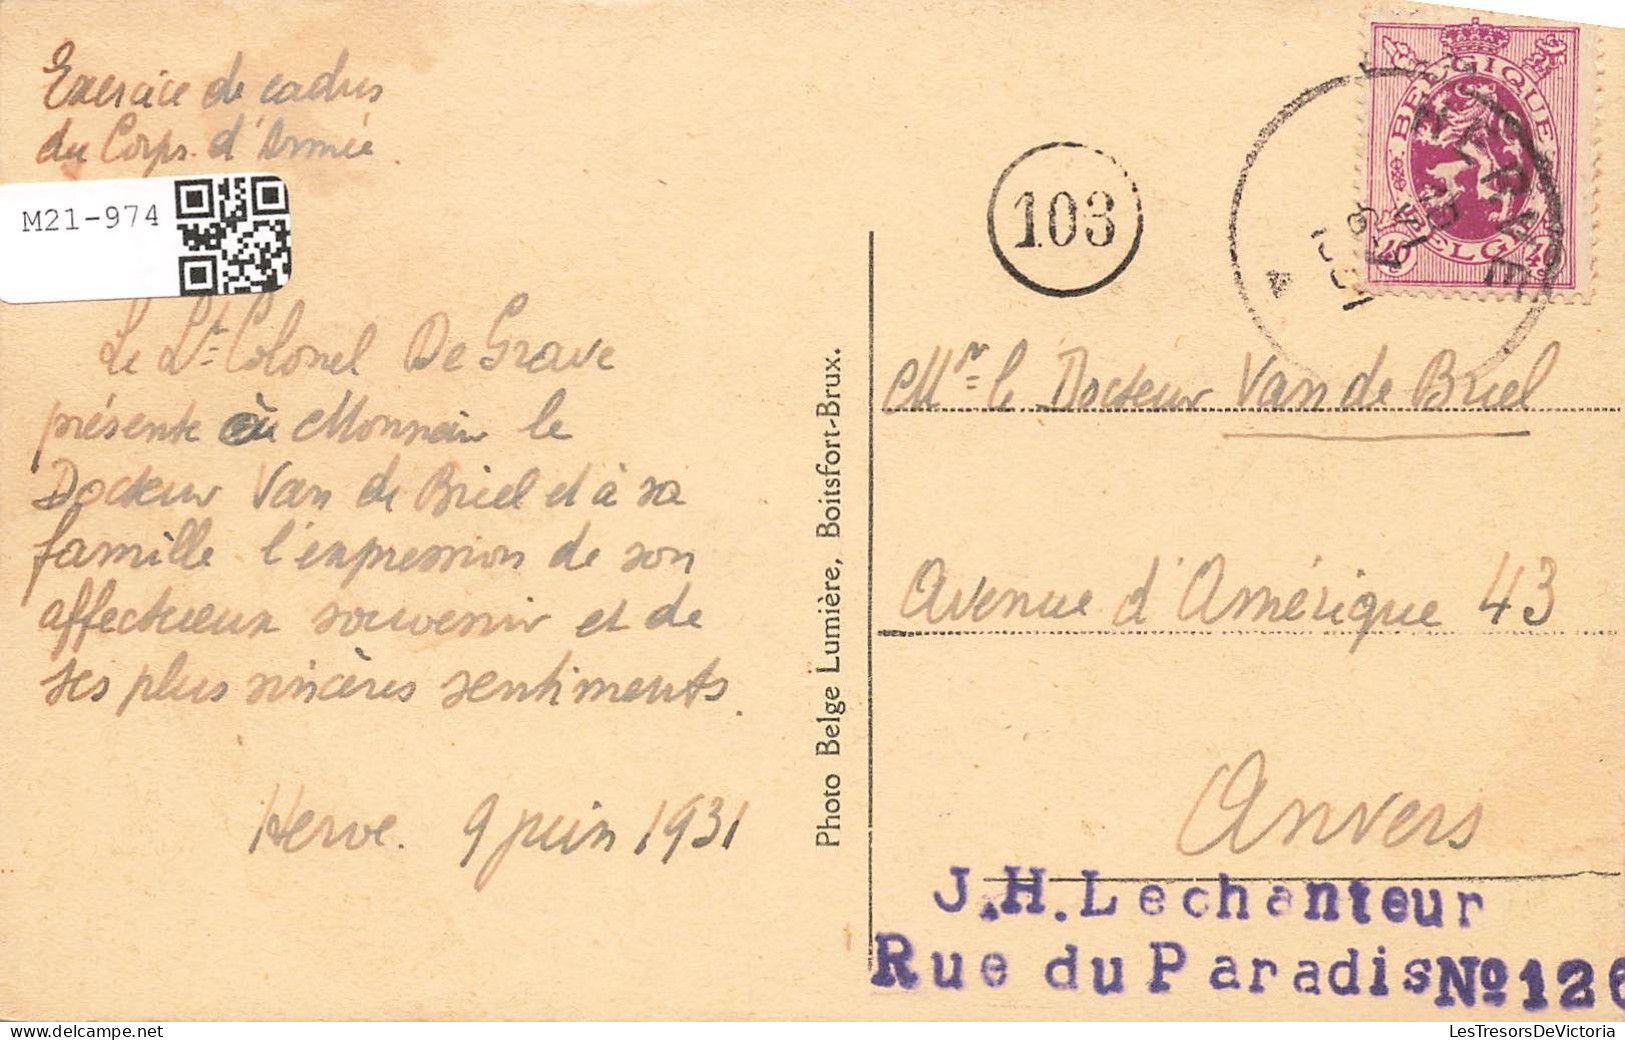 Exercice de cadres
du Corps d'Armée.
M21-974
Le Lt Colonel De Grave
présente à Monsieur le
Docteur Van de Briel et à sa
famille l'expression de son
affectueux souvenir et de
ses plus sincères sentiments.
Herve. 9 juin 1931
Photo Belge Lumière, Boitsfort-Brux.
103
BELGIQUE
BELGIË
40 40
HERVE
Mr le Docteur Van de Briel
Avenue d'Amérique 43
Anvers
J.H. Lechanteur
Rue du Paradis No 126
LesTresorsDeVictoria.com